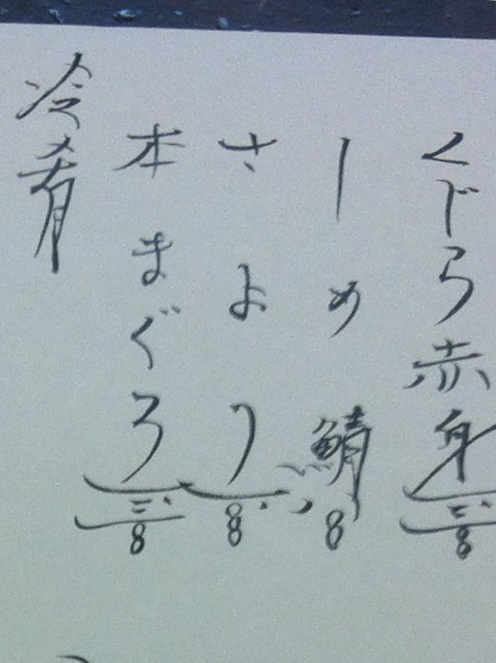 くじら赤身 8
しめ鯖 8
さより 8
本まぐろ 8
冷肴